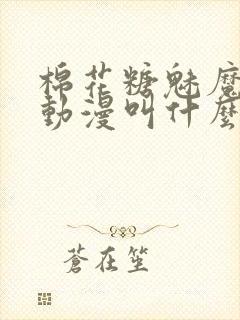 棉花糖魅魔
動漫叫什麼
蒼在笙